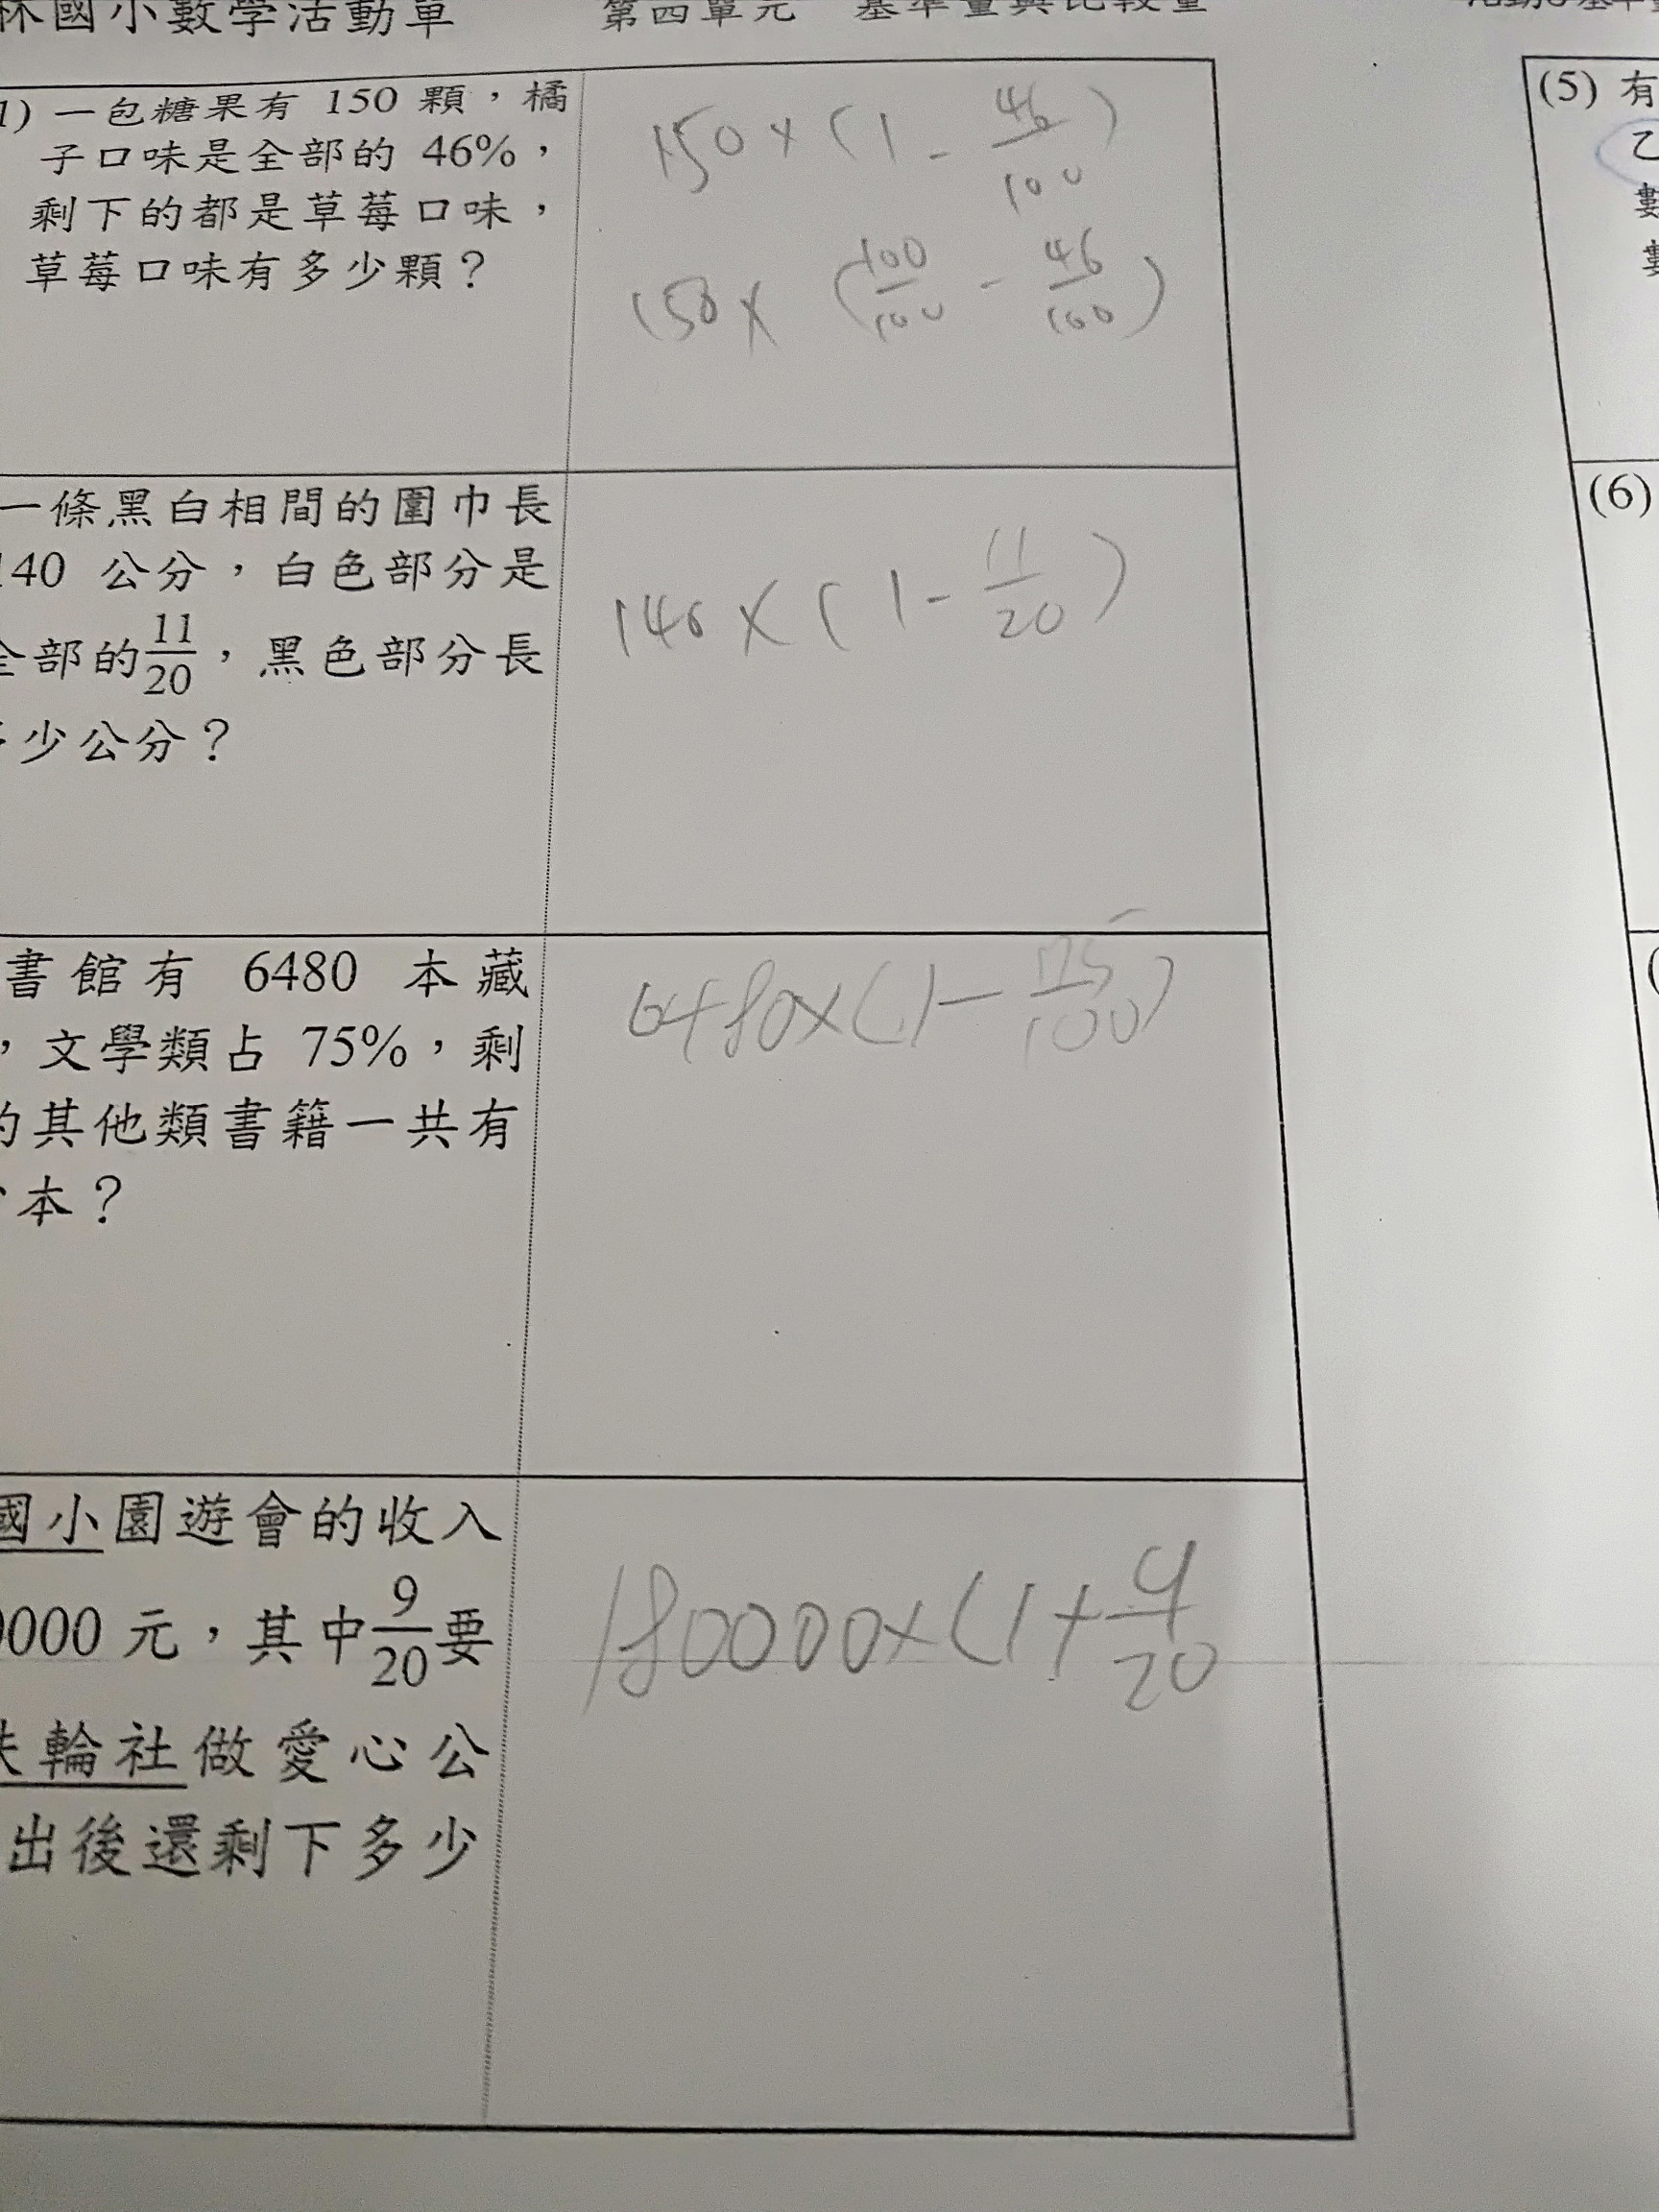 林國小數學活動單 第四單元 基準量與比較量
1) 一包糖果有 150 顆，橘
子口味是全部的 46%，
剩下的都是草莓口味，
草莓口味有多少顆？
150 × (1 - 46/100)
150 × (100/100 - 46/100)
一條黑白相間的圍巾長
140 公分，白色部分是
全部的11/20，黑色部分長
多少公分？
140 × (1 - 11/20)
書館有 6480 本藏
，文學類占 75%，剩
的其他類書籍一共有
本？
6480×(1-75/100)
國小園遊會的收入
0000 元，其中9/20要
扶輪社做愛心公
出後還剩下多少
180000×(1+9/20
(5) 有
乙
數
數
(6)